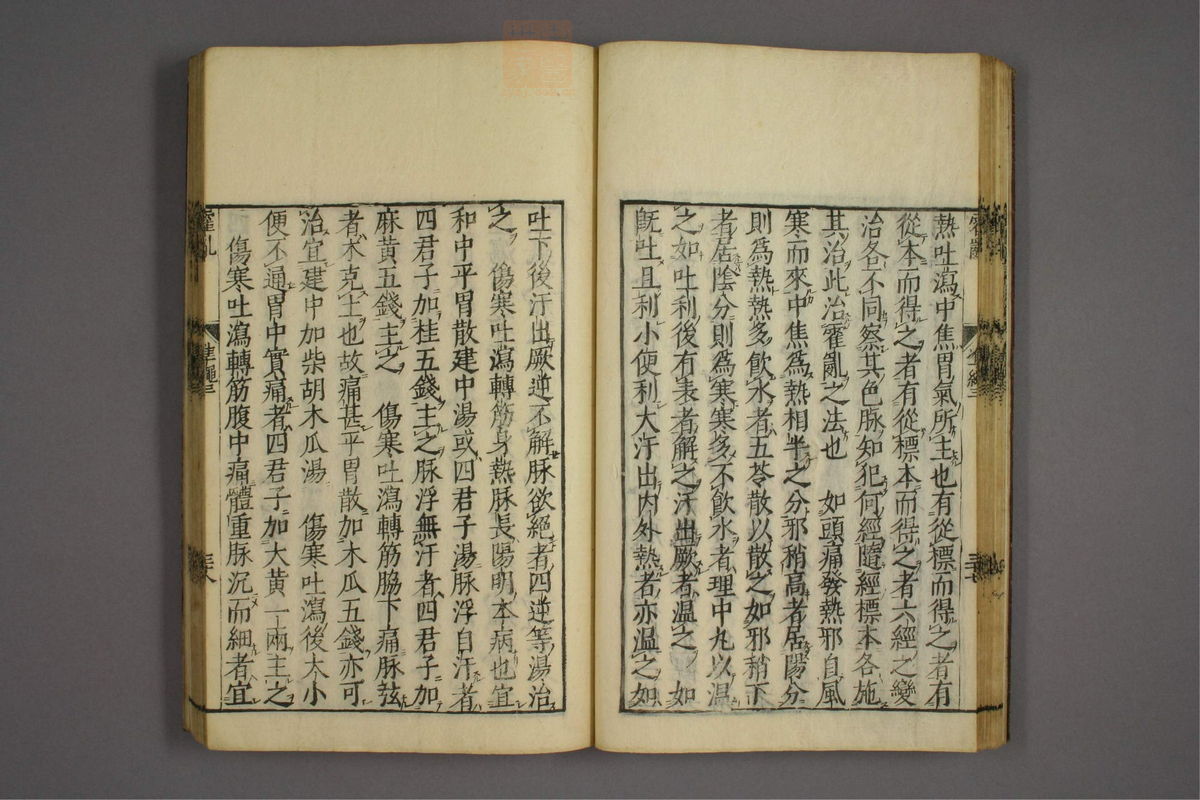 熱吐瀉中焦胃氣所主也有從標而得之者有
從本而得之者有從標本而得之者六經之變
治各不同察其色脉知犯何經隨經標本各施
其治此治霍亂之法也　如頭痛發熱邪自風
寒而來中焦為熱相半之分邪稍高者居陽分
則爲熱熱多飲水者五苓散以散之如邪稍下
者居陰分則爲寒寒多不飲水者理中丸以温
之如吐利後有表者解之汗出厥者温之　如
旣吐且利小便利大汗出内外熱者亦温之如
吐下後汗出厥逆不解脉欲絕者四逆等湯治
之　傷寒吐瀉轉筋身熱脉長陽明本病也宜
和中平胃散建中湯或四君子湯脉浮自汗者
四君子加桂五錢主之脉浮無汗者四君子加
麻黄五錢主之　傷寒吐瀉轉筋脇下痛脉弦
者木克土也故痛甚平胃散加木瓜五錢亦可
治宜建中加柴胡木瓜湯　傷寒吐瀉後大小
便不通胃中實痛者四君子加大黄一兩主之
傷寒吐瀉轉筋腹中痛體重脉沉而細者宜
霍亂
準繩三
三十八